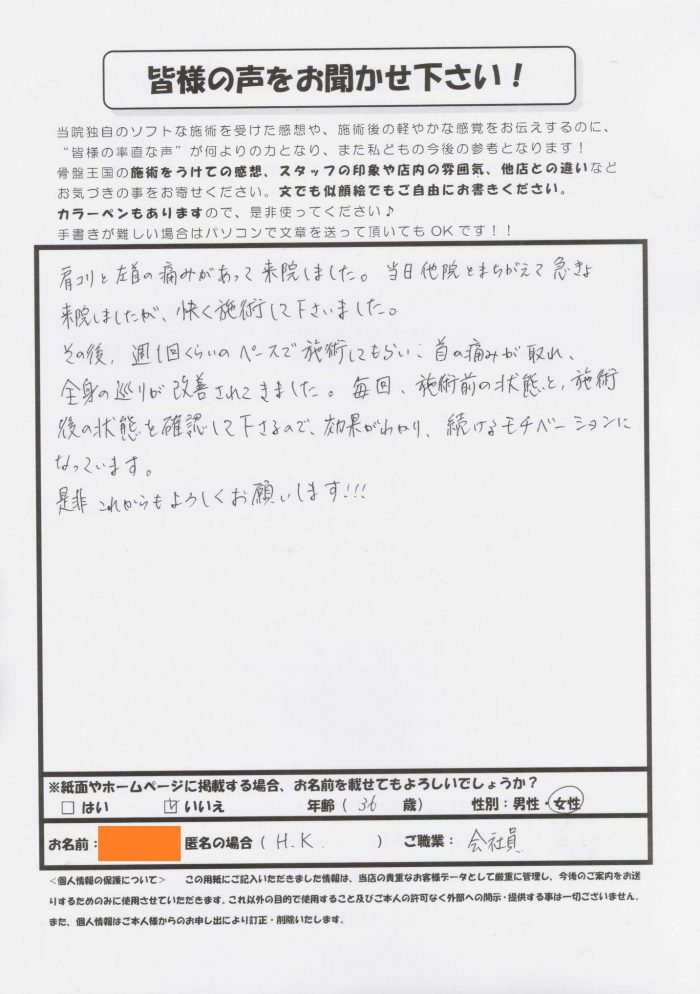 皆様の声をお聞かせ下さい！
当院独自のソフトな施術を受けた感想や、施術後の軽やかな感覚をお伝えするのに、
“皆様の率直な声”が何よりの力となり、また私どもの今後の参考となります！
骨盤王国の施術をうけての感想、スタッフの印象や店内の雰囲気、他店との違いなど
お気づきの事をお寄せください。文でも似顔絵でもご自由にお書きください。
カラーペンもありますので、是非使ってください♪
手書きが難しい場合はパソコンで文章を送って頂いてもOKです！！
肩コリと左首の痛みがあって来院しました。当日他院とまちがえて急きょ
来院しましたが、快く施術して下さいました。
その後、週1回くらいのペースで施術してもらい、首の痛みが取れ、
全身の巡りが改善されてきました。毎回、施術前の状態と、施術
後の状態を確認して下さるので、効果がわかり、続けるモチベーションに
なっています。
是非これからもよろしくお願いします!!!
※紙面やホームページに掲載する場合、お名前を載せてもよろしいでしょうか？
□ はい ☑ いいえ 年齢（ 36 歳） 性別：男性・女性
お名前： 匿名の場合（ H.K. ） ご職業： 会社員
＜個人情報の保護について＞ この用紙にご記入いただきました情報は、当店の貴重なお客様データとして厳重に管理し、今後のご案内をお送
りするためのみに使用させていただきます。これ以外の目的で使用すること及びご本人の許可なく外部への開示・提供する事は一切ございません。
また、個人情報はご本人様からのお申し出により訂正・削除いたします。